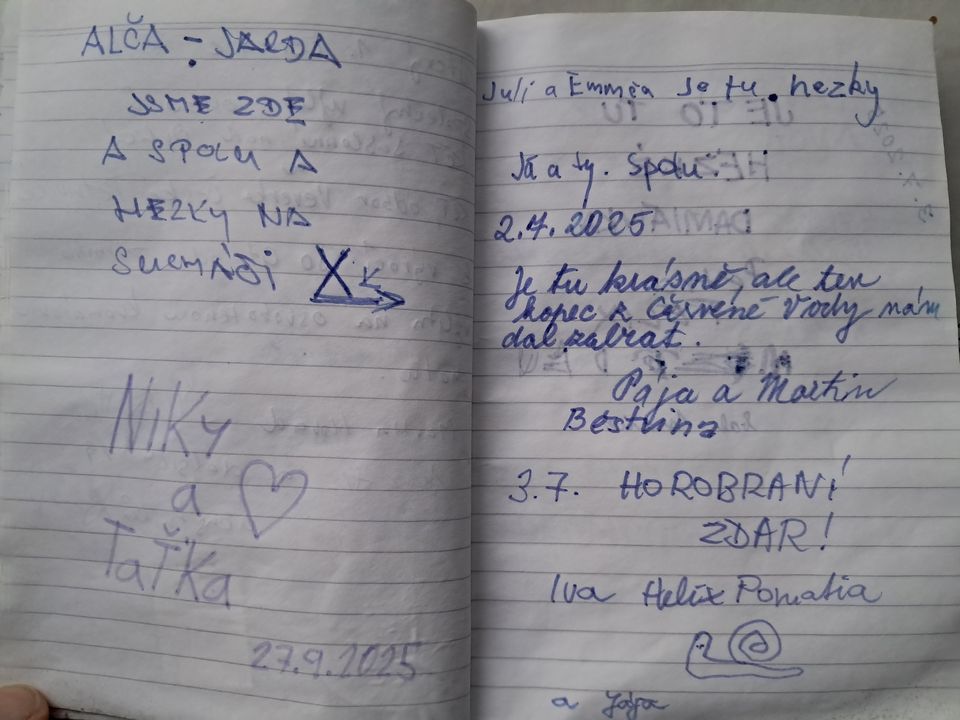 ALČA - JARDA
JSME ZDE
A SPOLU A
HEZKY NA
NIKY
a
TaŤKa
27.9.2025
Juli a Emmča je tu. hezky
Já a ty. Spolu.
2.7.2025
Je tu krásně, ale ten
kopec z Červené Vody nám
dal zabrat.
Pája a Martin
Bestvina
3.7. HOROBRANÍ
ZDAR!
Iva Helix Pomatia
a Jája